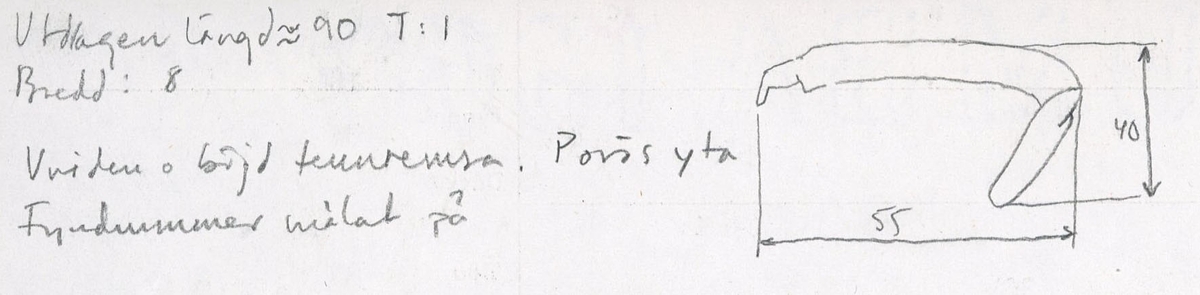 Utdragen längd ≈ 90 T: 1
Bredd: 8
Vriden o böjd tennremsa. Porös yta
Fyndnummer målat på
40
55